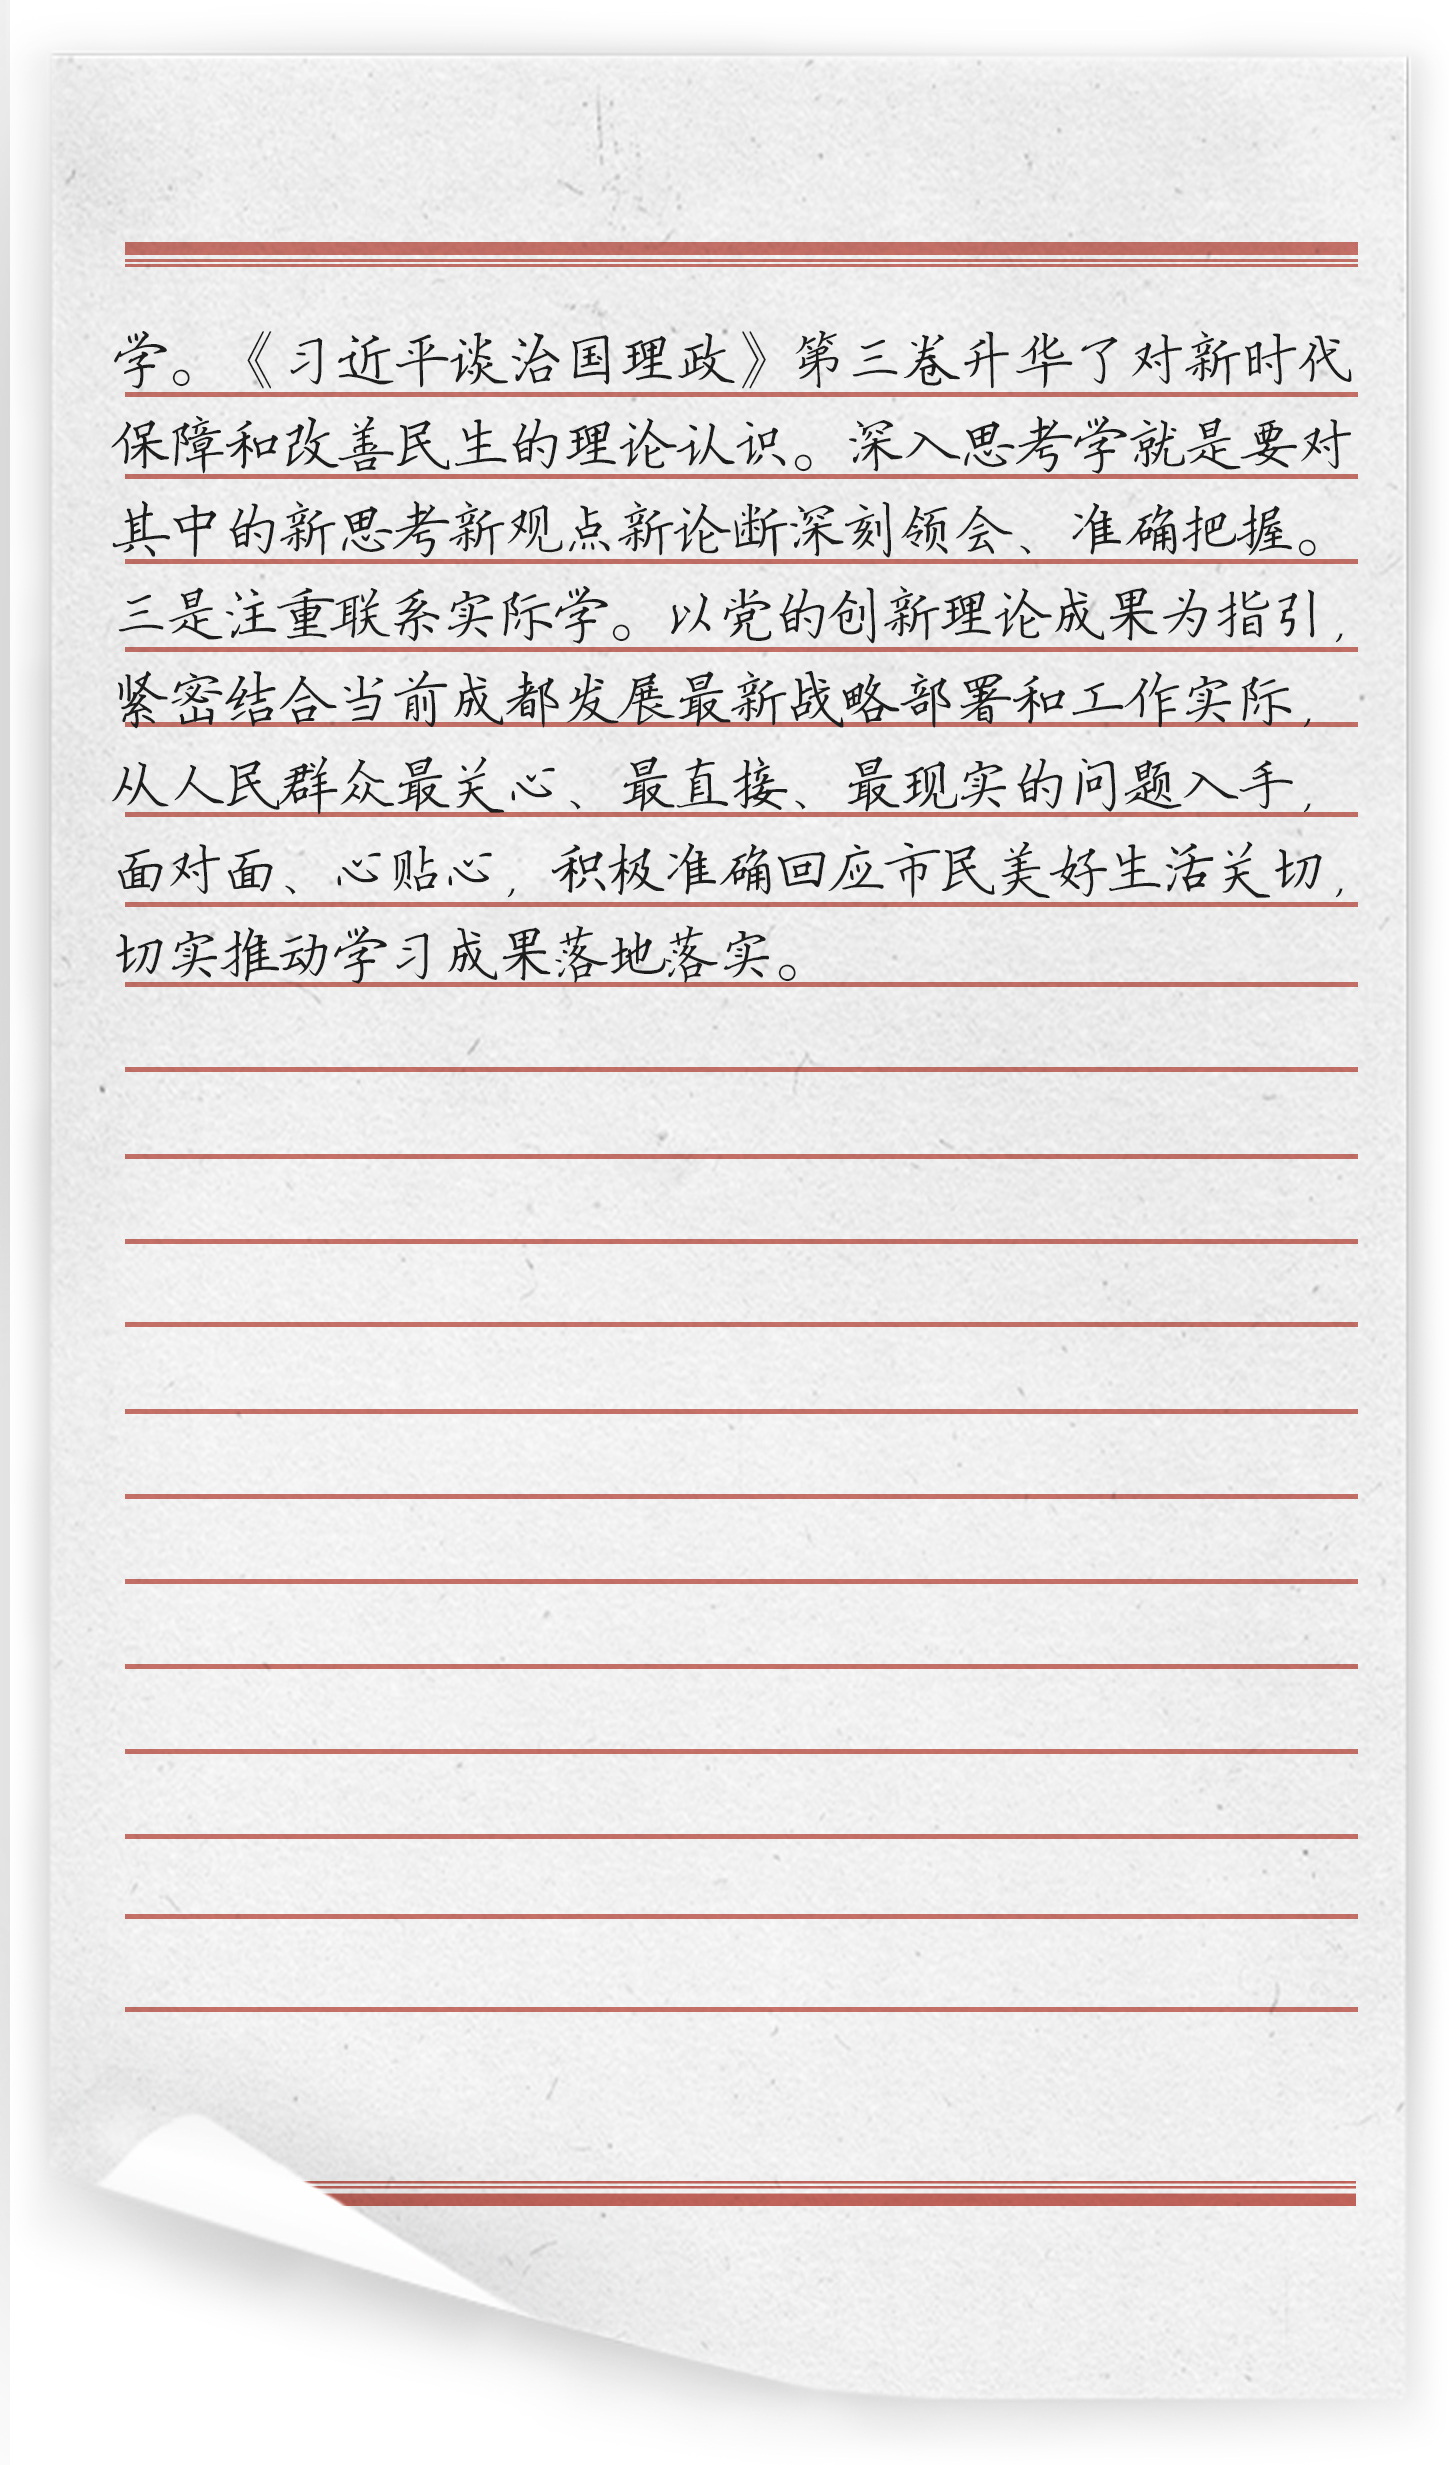 学。《习近平谈治国理政》第三卷升华了对新时代
保障和改善民生的理论认识。深入思考学就是要对
其中的新思考新观点新论断深刻领会、准确把握。
三是注重联系实际学。以党的创新理论成果为指引，
紧密结合当前成都发展最新战略部署和工作实际，
从人民群众最关心、最直接、最现实的问题入手，
面对面、心贴心，积极准确回应市民美好生活关切，
切实推动学习成果落地落实。